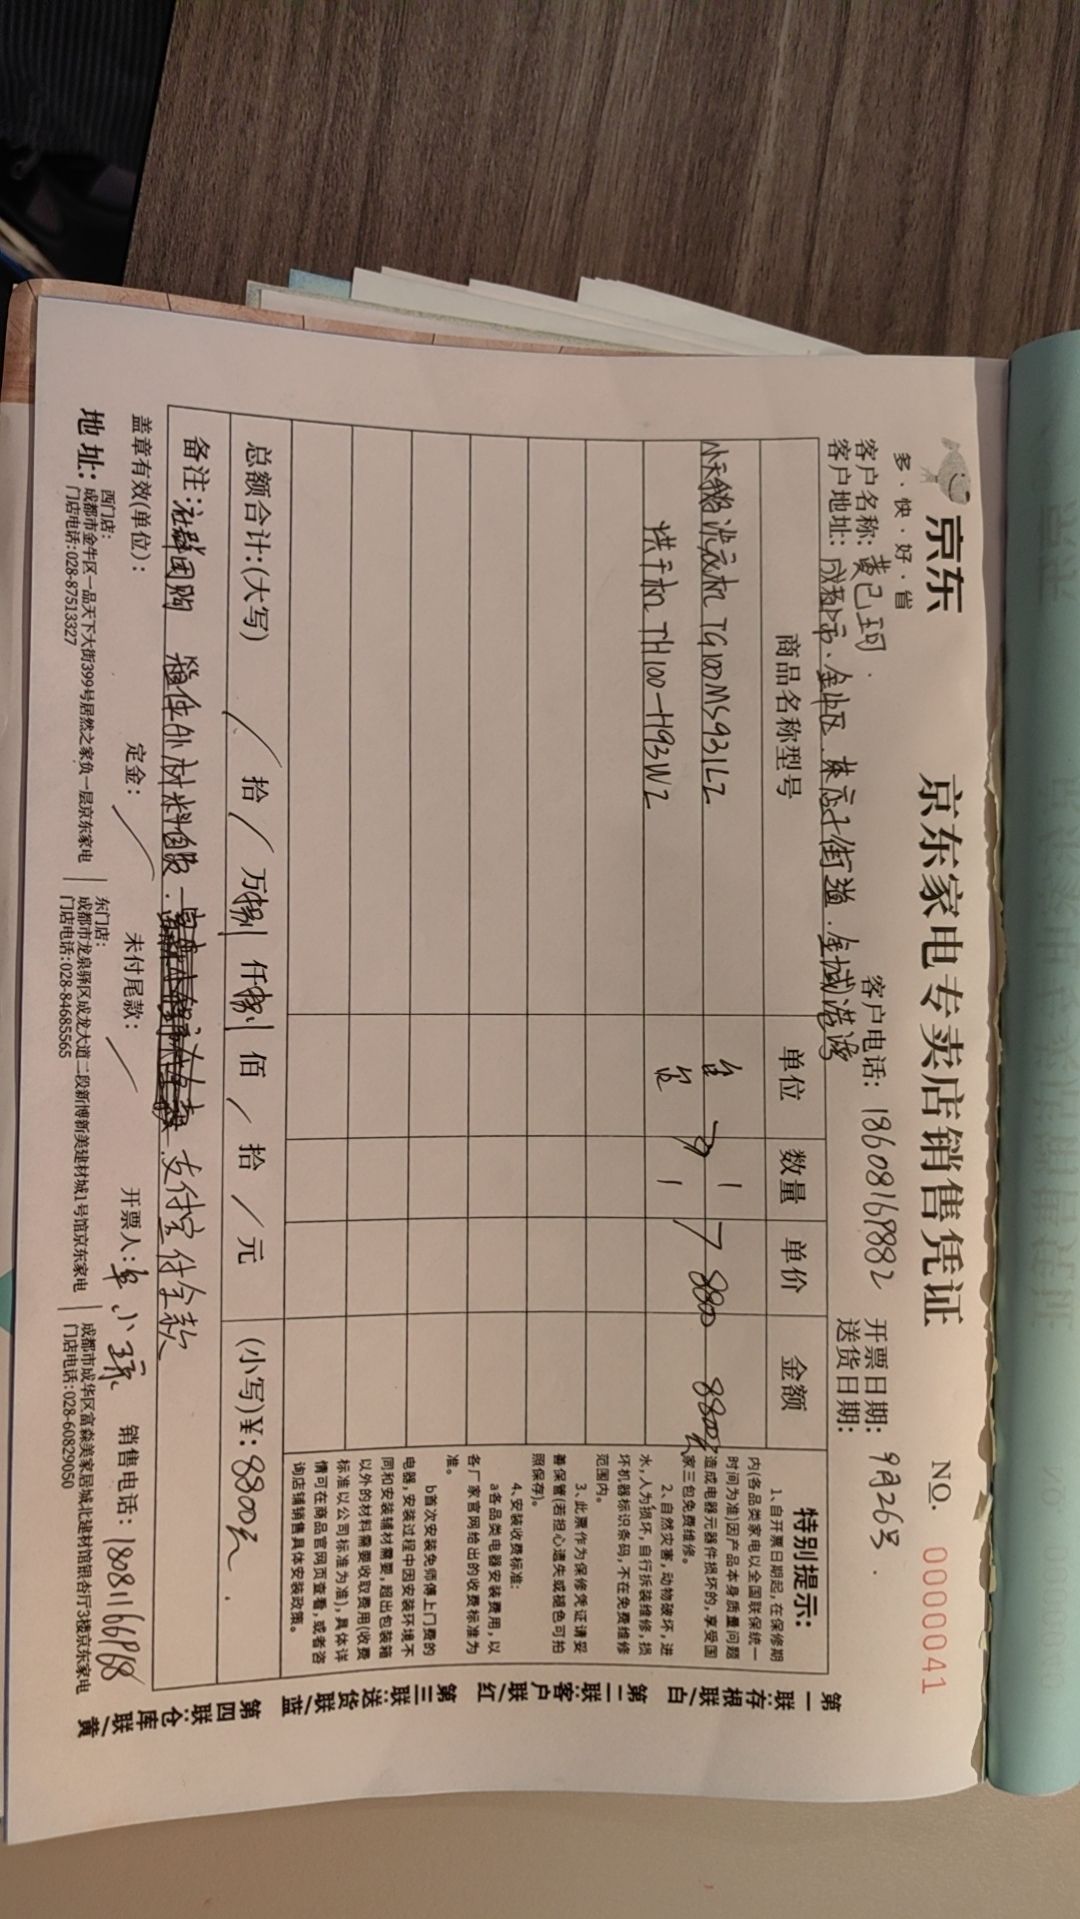 京东
多·快·好·省
京东家电专卖店销售凭证
NO. 0000041
客户名称:黄已珂
客户电话:18608169882
开票日期:9月26号
客户地址:成都市.金牛区.茶店子街道.金城港湾
送货日期:
商品名称型号 单位 数量 单价 金额
小天鹅洗衣机 TG100MS931LZ 台 1 8800 8800元
烘干机 TH100-H93WZ 台 1
总额合计:(大写) / 拾 / 万 捌 仟 捌 佰 / 拾 / 元 (小写)¥:8800元.
备注:社群团购 箱体外材料自费. 支付宝付全款
盖章有效(单位): 定金: / 未付尾款: / 开票人:卓小琼 销售电话:18081166968
特别提示:
1、自开票日期起,在保修期
内(各品类家电以全国联保统一
时间为准)因产品本身质量问题
造成电器元器件损坏的,享受国
家三包免费维修。
2、自然灾害,动物破坏,进
水,人为损坏,自行拆装维修,损
坏机器标识条码,不在免费维修
范围内。
3、此票作为保修凭证请妥
善保管(若担心遗失或褪色可拍
照保存)。
4、安装收费标准:
a各品类电器安装费用,以
各厂家官网给出的收费标准为
准。
b首次安装免师傅上门费的
电器,安装过程中因安装环境不
同和安装辅材需要,超出包装箱
以外的材料需要收取费用(收费
标准以公司标准为准),具体详
情可在商品官网页查看,或者咨
询店铺销售具体安装政策。
第一联:存根联/白 第二联:客户联/红 第三联:送货联/蓝 第四联:仓库联/黄
地址:
西门店:
成都市金牛区一品天下大街399号居然之家负一层京东家电
门店电话:028-87513327
东门店:
成都市龙泉驿区成龙大道二段新博新美建材城1号馆京东家电
门店电话:028-84685565
成都市成华区富森美家居城北建材馆银杏厅3楼京东家电
门店电话:028-60829050